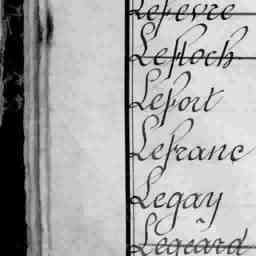 Lefevre
Lefloch
Lefort
Lefranc
Legay
Legeard